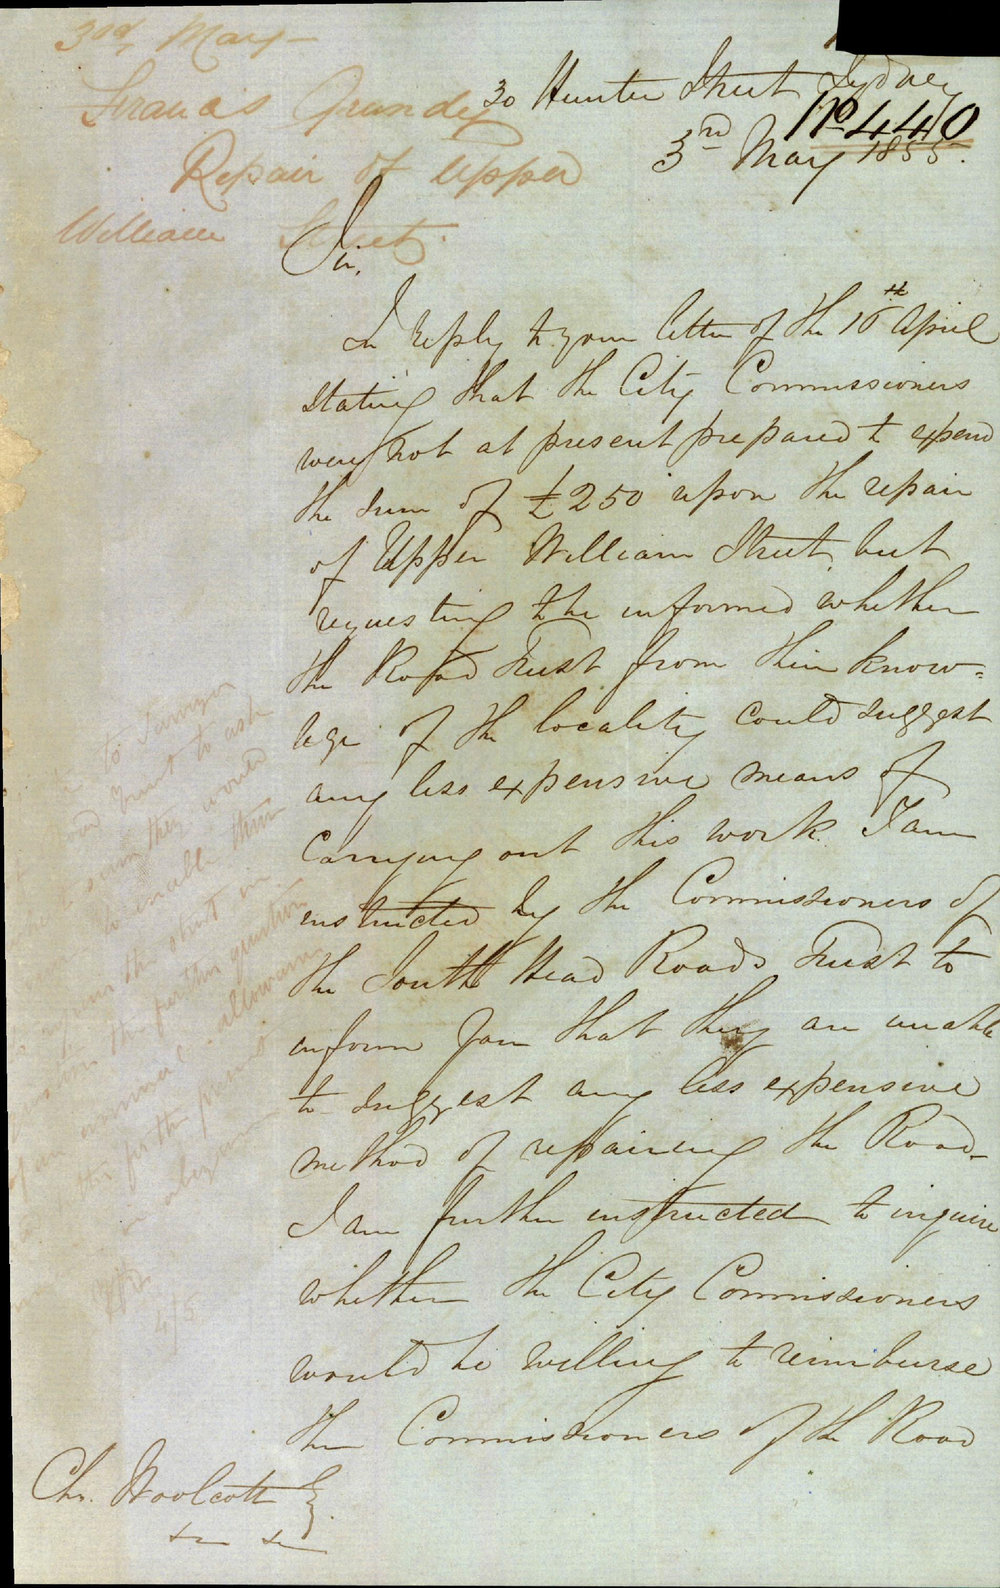 3rd, May
Francis Grundy
Repair of Upper
William Street.
30 Hunter Street Sydney
No 440
3rd May 1855.
Sir,
In reply to your letter of the 16th April
stating that the City Commissioners
were not at present prepared to expend
the sum of £250 upon the repair
of Upper William Street, but
requesting to be informed whether
the Road Trust from their know=
lege of the locality could suggest
any less expensive means of
carrying out this work. I am
instructed by the Commissioners of
the South Head Roads Trust to
inform you that they are unable
to suggest any less expensive
method of repairing the Road-
I am further instructed to inquire
whether the City Commissioners
would be willing to reimburse
the Commissioners of the Road
Chs. Woolcott Esq.
to Surveyor
Road Trust to ask
sum they would
to enable them
the street in
the further question
annual allowance
for the present
4/5